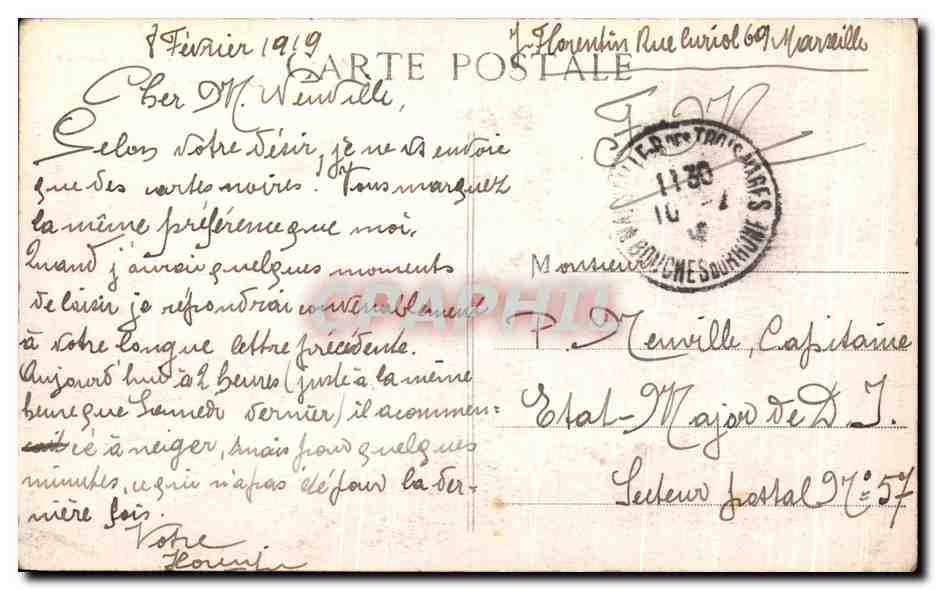 8 Février 1919
J. Florentin Rue Curiol 69 Marseille
CARTE POSTALE
Cher M. Menville,
F. M.
Selon votre désir, je ne vs envoie
que des cartes noires. Vous marquez
la même préférence que moi.
Quand j'aurai quelques moments
de loisir je répondrai convenablement
à votre longue lettre précédente.
Aujourd'hui à 2 heures (juste à la même
heure que Samedi dernier) il a commen-
cé à neiger, mais pour quelques
minutes, ce qui n'a pas été pour la der-
nière fois.
Votre
Florentin
MARSEILLE-R. DES TROIS MAGES
1130
10 - 2
BOUCHES DU RHONE
Monsieur
P. Menville, Capitaine
Etat-Major de D. I.
Secteur postal No 57
CPAPHIL